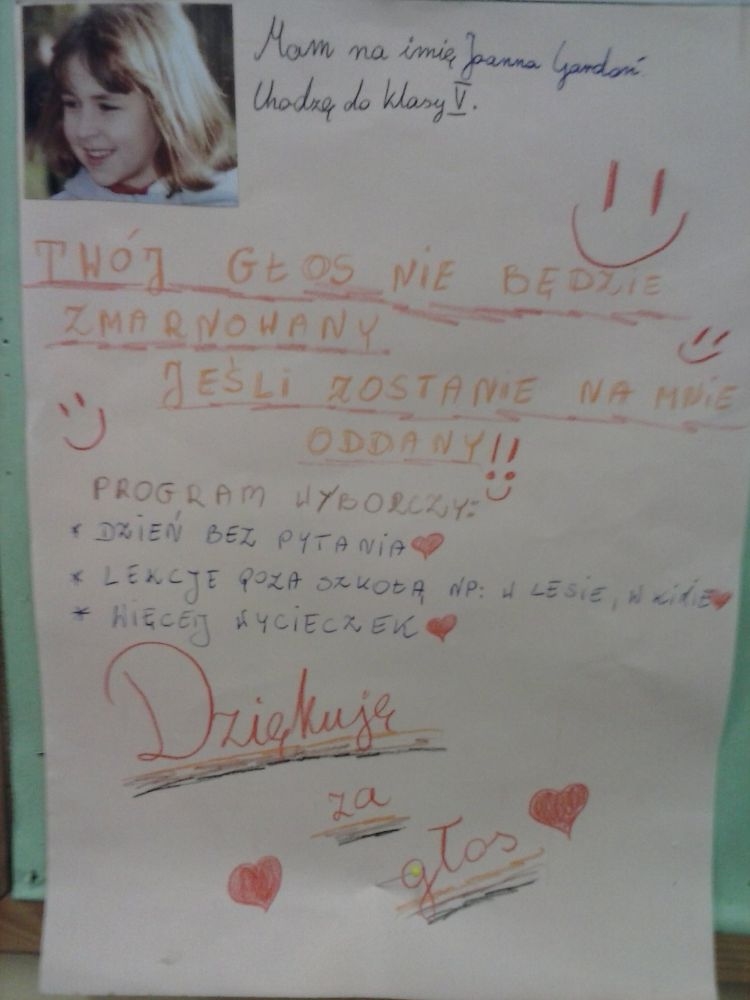 Mam na imię Joanna Gardoń.
Chodzę do klasy V.
TWÓJ GŁOS NIE BĘDZIE
ZMARNOWANY
JEŚLI ZOSTANIE NA MNIE
ODDANY!!
PROGRAM WYBORCZY:
* DZIEŃ BEZ PYTANIA
* LEKCJE POZA SZKOŁĄ NP: W LESIE, W KINIE
* WIĘCEJ WYCIECZEK
Dziękuję
za
głos